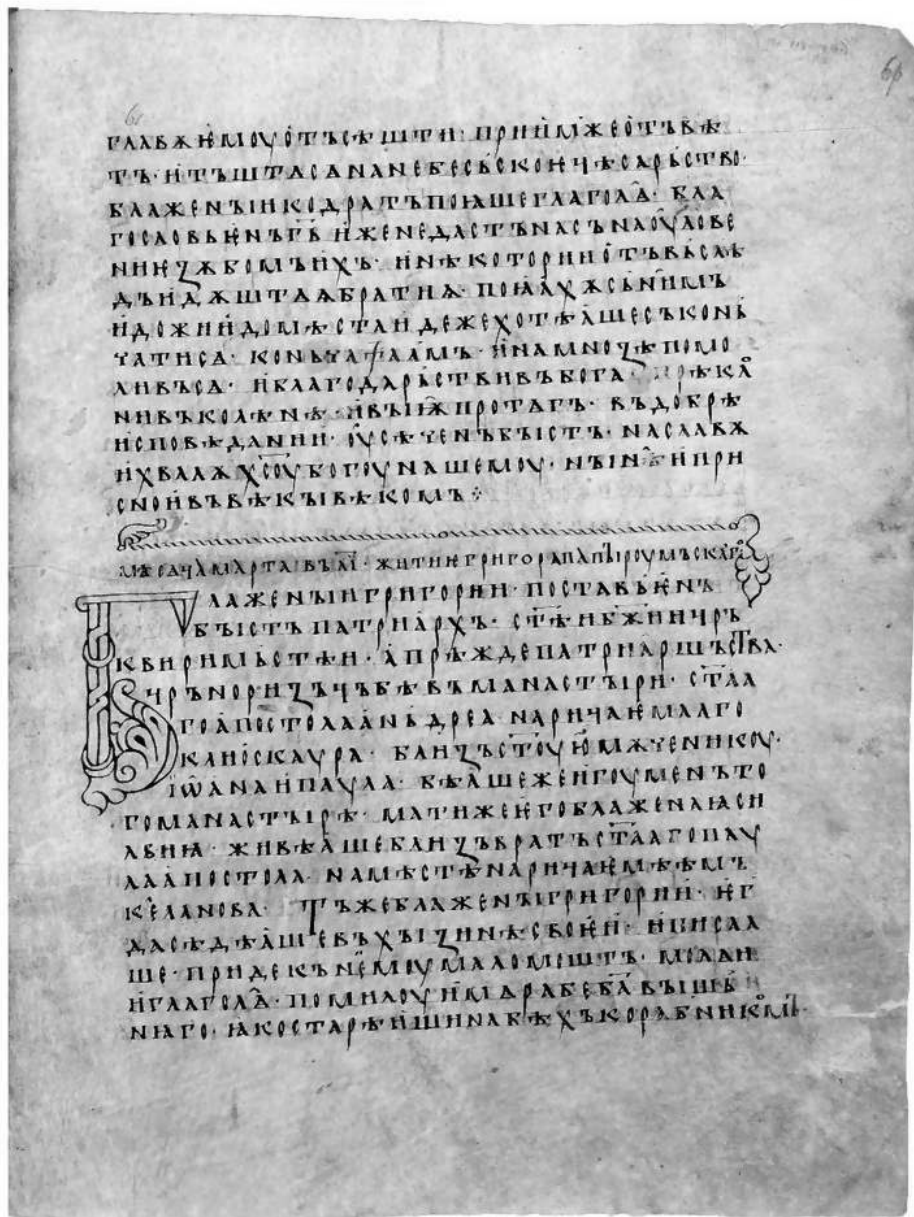 главѫ ѥмоу отъсѣшти· приимъ же отъвѣ
тъ· и тъштѧ сѧ на небесьскоѥ цѣсарьство·
блаженыи кодратъ поꙗше глаголѧ· бла
гословьѥнъ г҃ь иже не дастъ насъ на оуловѥ
ниѥ ѕѫбомъ ихъ· и нѣ котории отъ въслѣ
дъ идѫштѧѧ братиѩ· поꙗахѫ съ нимъ
и дожии до мѣста идеже хотѣаше съконь
чати сѧ· коньчаѱаламъ· и на мноѕѣ помо
ливъ сѧ· и благодарьствивъ бога· прѣкло
нивъ колѣнѣ· и выѭ протѧгъ· въ добрѣ
исповѣдании· оусѣченъ бъістъ· на славѫ
и хвалѫ х҃соу богоу нашемоу· нъінꙗ и при
сно и въ вѣкъі вѣкомъ ⁘
мѣсѧца марта въ 1҃1· житиѥ григора папъі роумъскаѥго
Блаженъіи григории· поставьѥнъ
бъістъ патриархъ· ст҃ѣи б҃жии цръ
кви римьстѣи· а прѣжде патриаршьства·
чръноризьць бѣ въ манастъіри· ст҃аа
го апостола аньдреа· наричаѥмааго
клиоскаура· близъ ст҃оую мѫченикоу·
іѡана и паула· бѣаше же игоуменъ то
го манастъірѣ· мати же ѥго блаженаꙗ си
львиꙗ· живѣаше близъ вратъ ст҃ааго пау
ла апостола· на мѣстѣ наричаѥмѣѣмь
келанова· Тъже блаженъі григории· ѥг
да сѣдѣаше въ хъізинѣ своѥи· и писаа
ше· приде къ нѥмоу маломошть· молѧ и
и глаголѧ· помилоуи мѧ рабе б҃а въішь
нꙗго· ꙗко старѣишина бѣхъ корабникомъ·